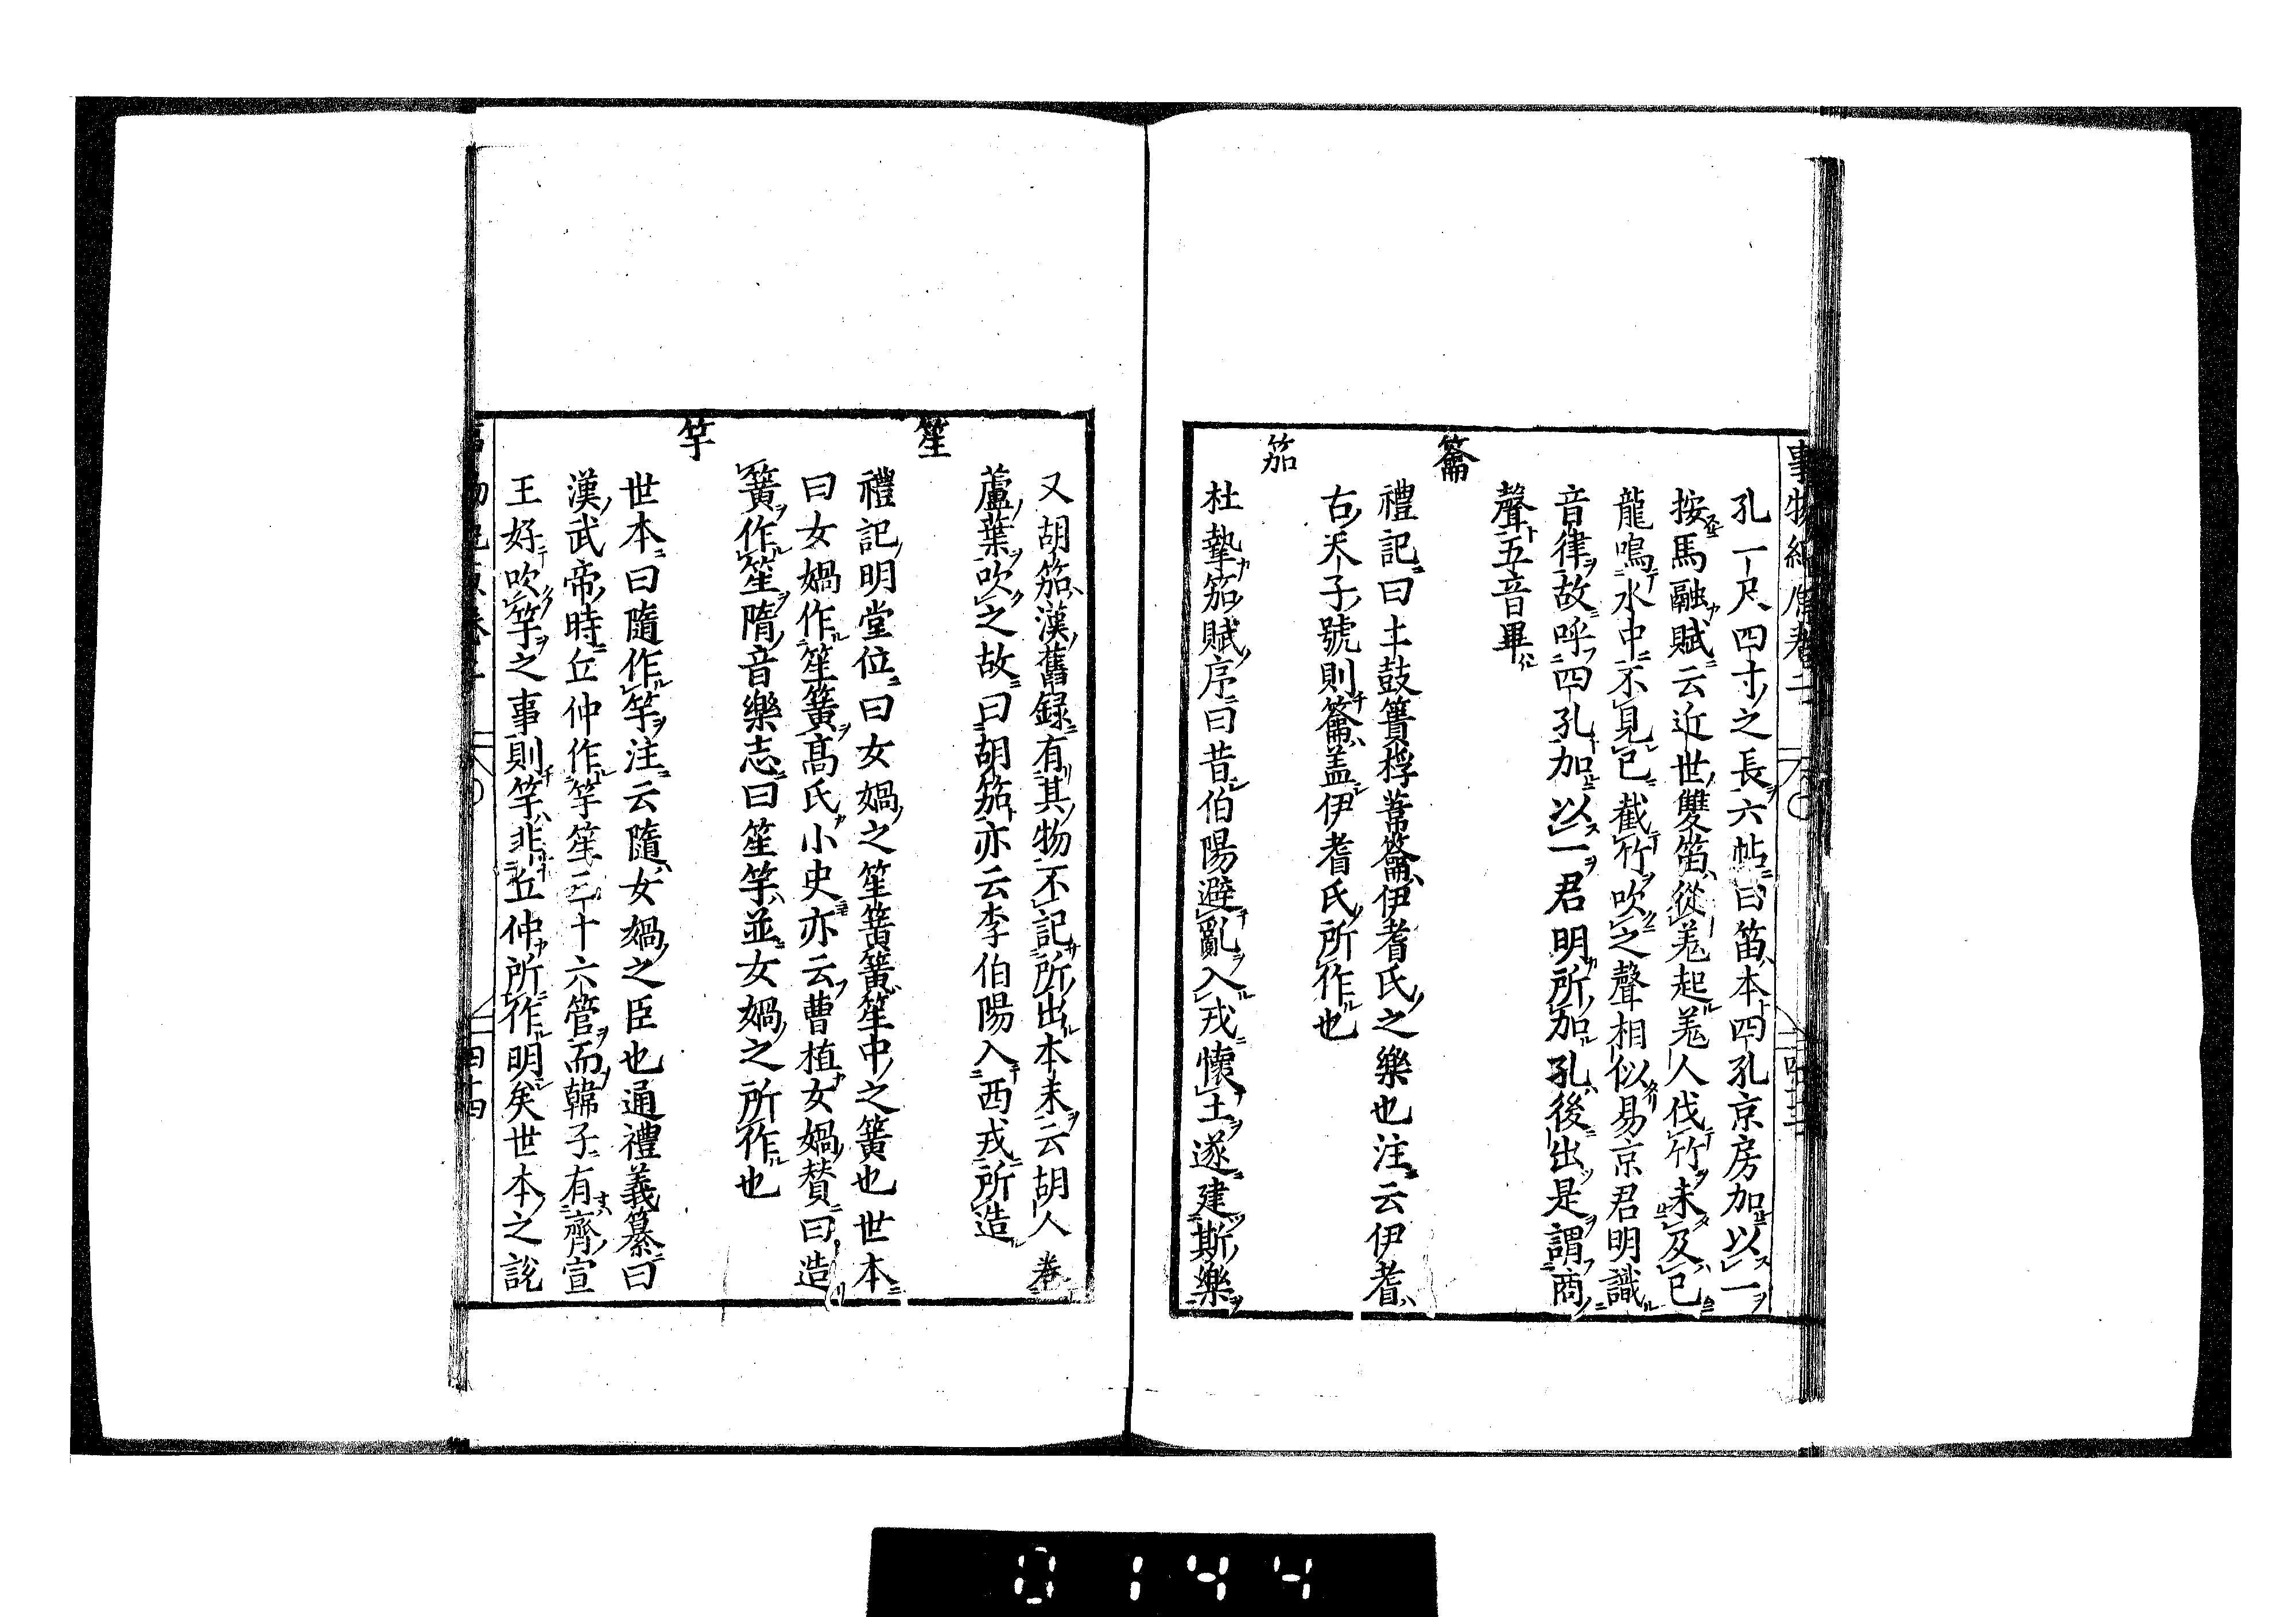 孔一尺四寸之長六帖曰笛本四孔京房加以一
按馬融賦云近世雙笛從羌起羌人伐竹未及已
龍鳴水中不見已截竹吹之聲相似易京君明識
音律故呼四孔加以一君明所加孔後出是謂商
聲五音畢
籥
禮記曰土鼓簣桴葦籥伊耆氏之樂也注云伊耆
古天子號則籥盖伊耆氏所作也
笳
杜摯笳賦序曰昔伯陽避亂入戎懐土遂建斯樂
又胡笳漢舊録有其物不記所出本末云胡人卷
蘆葉吹之故曰胡笳亦云李伯陽入西戎所造
笙
禮記明堂位曰女媧之笙簧簧笙中之簧也世本
曰女媧作笙簧高氏小史亦云曹植女媧賛曰造
簧作笙隋音樂志曰笙竽並女媧之所作也
竽
世本曰隨作竽注云隨女媧之臣也通禮義纂曰
漢武帝時丘仲作竽笙三十六管而韓子有齊宣
王好吹竽之事則竽非丘仲所作明矣世本之說
0144